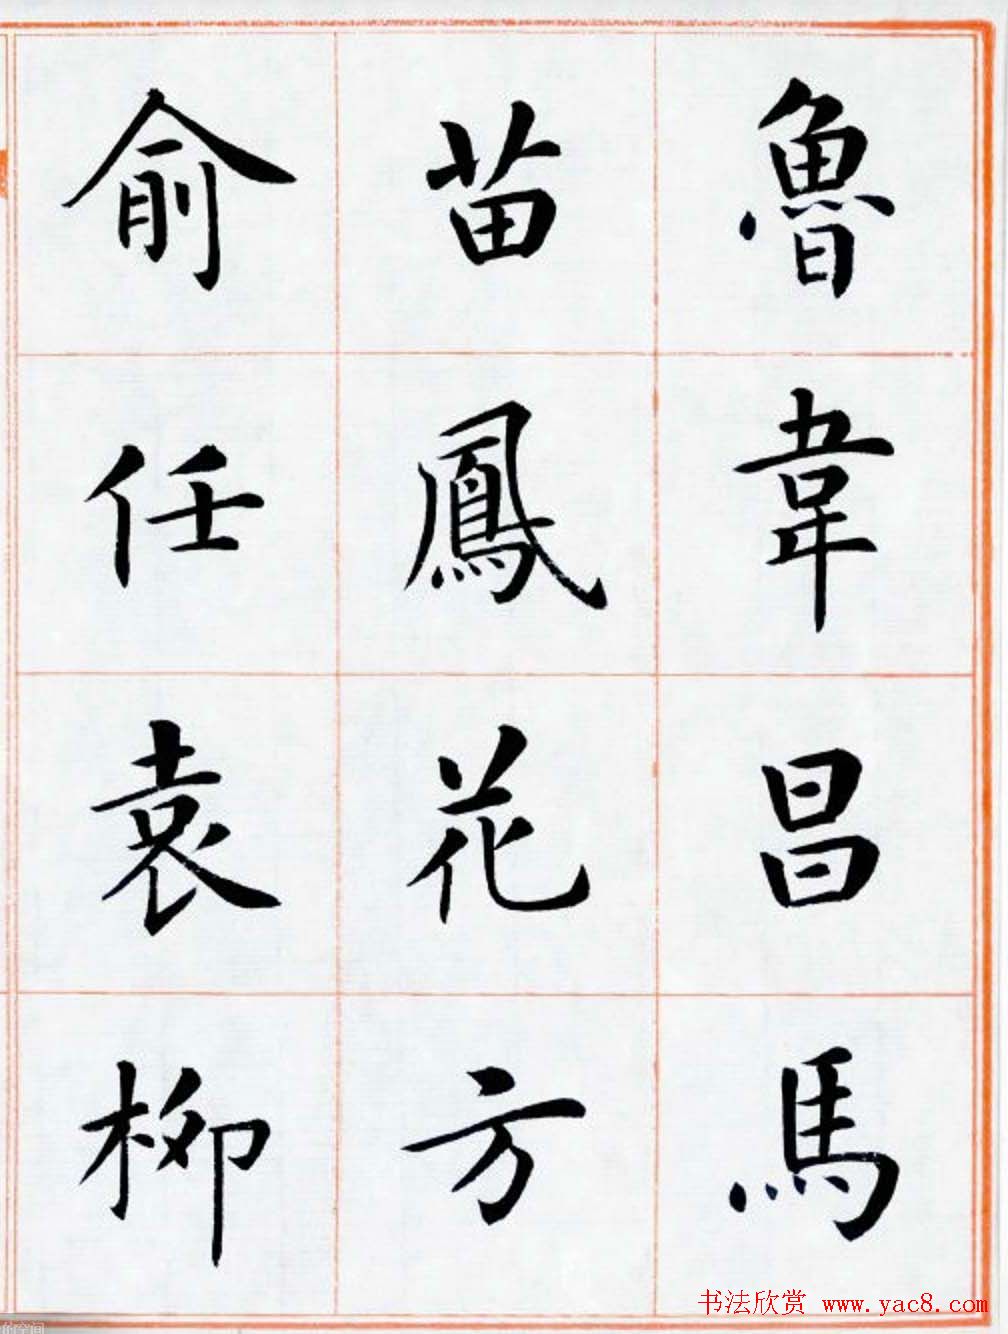 魯韋昌馬
苗鳳花方
俞任袁柳
书法欣赏 www.yac8.com
的空间